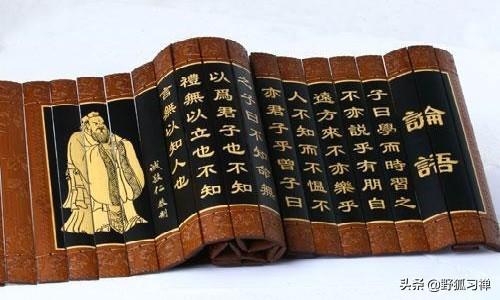 論語
子曰學而時習之
不亦說乎有朋自
遠方來不亦樂乎
人不知而不慍不
亦君子乎曾子曰
子曰不知命無
以爲君子也不知
禮無以立也不知
言無以知人也
头条 @野狐习禅